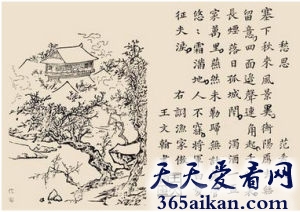 愁思 范希
塞下秋來風景異衡陽
留意四面邊聲連角起
長煙落日孤城閉 濁酒
家萬里燕然未勒歸無
悠〻霜滿地人不寐將軍
征夫淚 右調漁家傲
王文翰
天天爱看网
365aikan.com